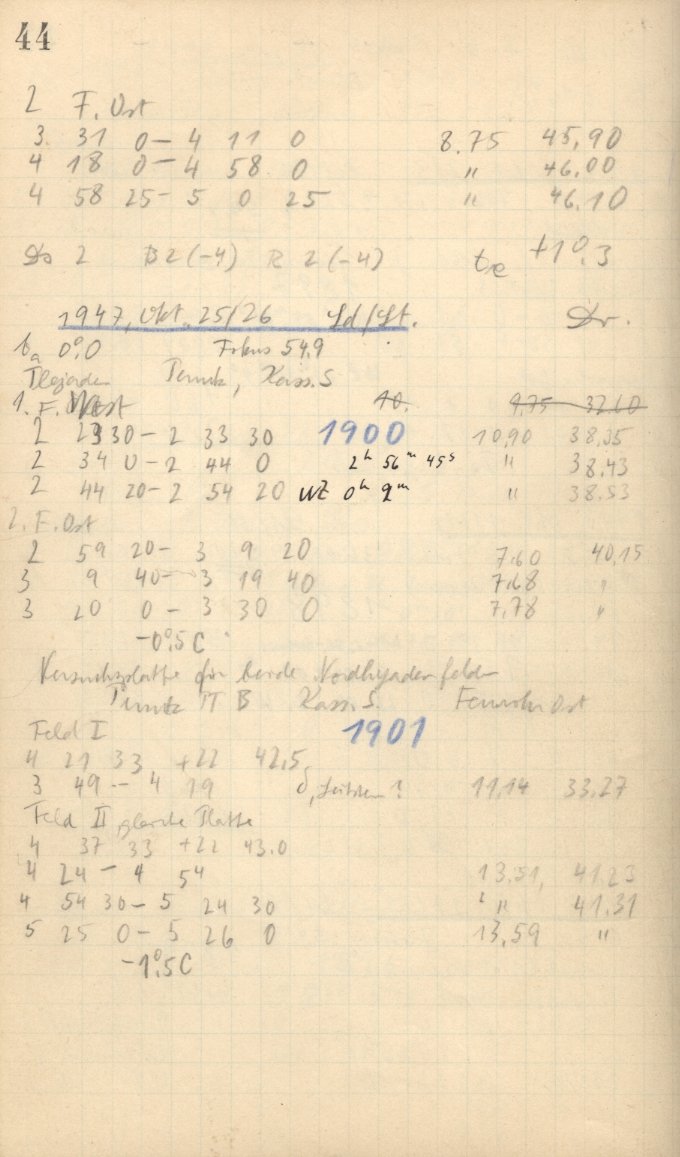 44
2 F. Ost
3 31 0 – 4 11 0 8,75 45,90
4 18 0 – 4 58 0 " 46,00
4 58 25 – 5 0 25 " 46,10
2 B 2 (-4) R 2 (-4) te +1°.3
1947, Okt. 25/26 Ld/Lt. Dr.
ta 0°.0 Fokus 54.9
Plejaden Pernutz, Kass. S
1. F. West 10. 9,75 37.60
2 23 30 – 2 33 30 1900 10,90 38,35
2 34 0 – 2 44 0 2h 56m 45s " 38,43
2 44 20 – 2 54 20 WZ 0h 9m " 38,53
2. F. Ost
2 59 20 – 3 9 20 7,60 40,15
3 9 40 – 3 19 40 7,68 "
3 20 0 – 3 30 0 7,78 "
-0°.5 C
Versuchsplatte für beide Nordhyadenfelder
B Kass. S. Fernrohr Ost
Feld I 1901
4 21 33 +22 42,5
3 49 – 4 19 11,14 33,27
Feld II gleiche Platte
4 37 33 +22 43.0
4 24 – 4 54 13,51, 41,23
4 54 30 – 5 24 30 " 41,31
5 25 0 – 5 26 0 13,59 "
-1°.5 C